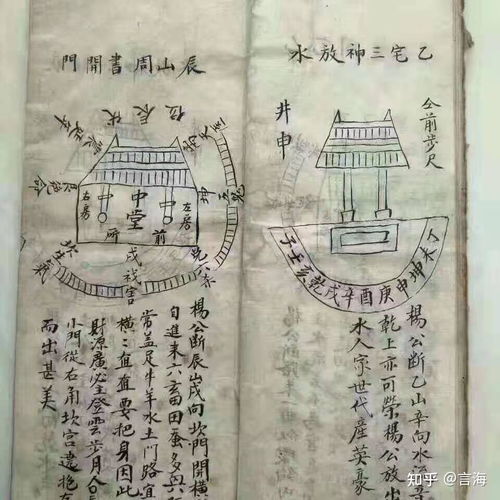 乙宅三神放水
全前步尺
井申
丁未坤申庚酉辛戌乾亥壬子
楊公断乙山辛向水
乾上亦可榮楊公放出
水人家世代産英豪
辰山周書開門
位辰伏
中堂
左房
右房
前
所
戌
害
坎生氣
楊公断辰山戌向坎門開横
自進来六畜田蚕多興
常益足牛羊水土門路宜
横二直直要把身因此
財源廣必主登雲步月
小門從右角坎宫邊
而出甚美
知乎 @言海